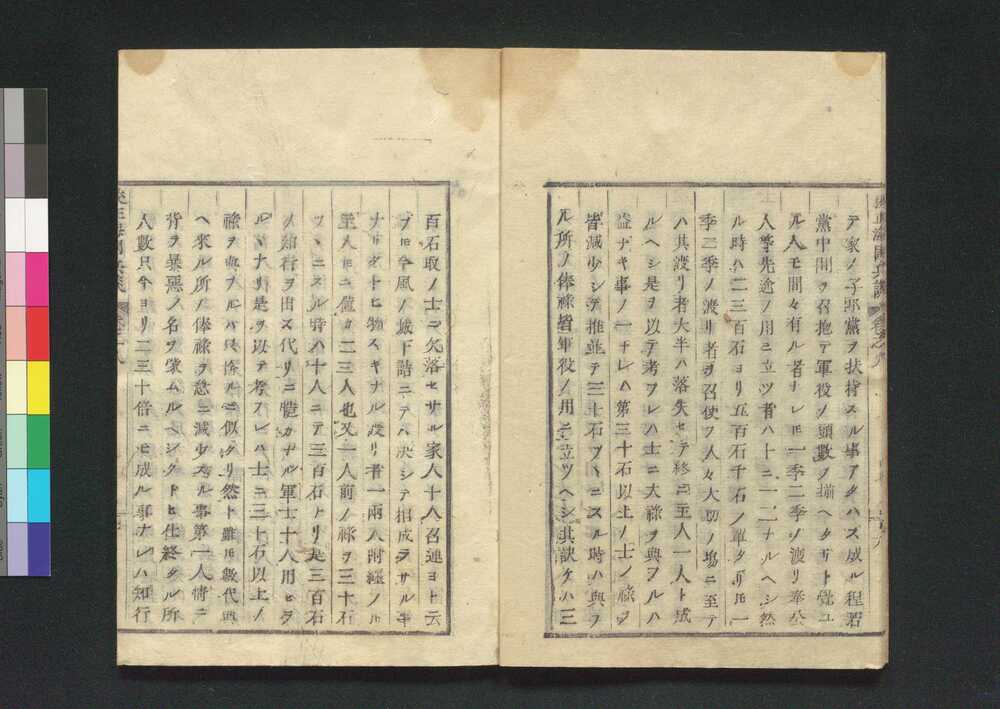 テ家ノ子郎黨ヲ扶持スル事アタハズ成ル程若
黨中間ヲ召抱テ軍役ノ頭數ノ揃ヘタリト覺ユ
ル人モ間々有ル者ナレ𪜈一季二季ノ渡リ奉公
人擧先途ノ用ニ立ツ者ハ十ニ一二ナルヘシ然
ル時ハ二三百石ヨリ五百石千石ノ士タリ𪜈一
季二季ノ渡リ者ヲ召使フ人々大切ノ場ニ至テ
ハ其渡リ者大半ハ落失セテ終ニ主人一人ト成
ルヘシ是ヲ以テ考フレハ士ニ大祿ヲ與フルハ
益ナキ事ノ一ナレハ第三十石以上ノ士ノ祿ヲ
皆減少シテ推並テ三十石ツヽニスル時ハ與フ
ル所ノ俸祿皆軍役ノ用ニ立ツヘシ其訣ケハ三
百石取ノ士ニ欠落セサル家人十人召連ヨト云
フ𪜈今風ノ城下詰ニテハ決シテ相成ラサル事
ナリタトヒ物スキナル渡リ者一兩人附纏ノル
主人𪜈ニ僅カ二三人也又一人前ノ祿ヲ三十石
ツヽニスル時ハ十人ニテ三百石トリ是三百石
ノ知行ヲ出ス代リニ慥カナル軍士十人用ヒラ
ルヽナリ是ヲ以テ考フレハ士ニ三十石以上ノ
祿ヲ與フルハ
ニ似タリ然ト雖𪜈數代與
ヘ來ル所ノ俸祿ヲ怠ニ減少スル事第一人情ニ
背ヲ暴惡ノ名ヲ蒙ムルヘシタトヒ仕終タル所
人數只今ヨリ二三十倍ニモ成ル事ナレハ知行